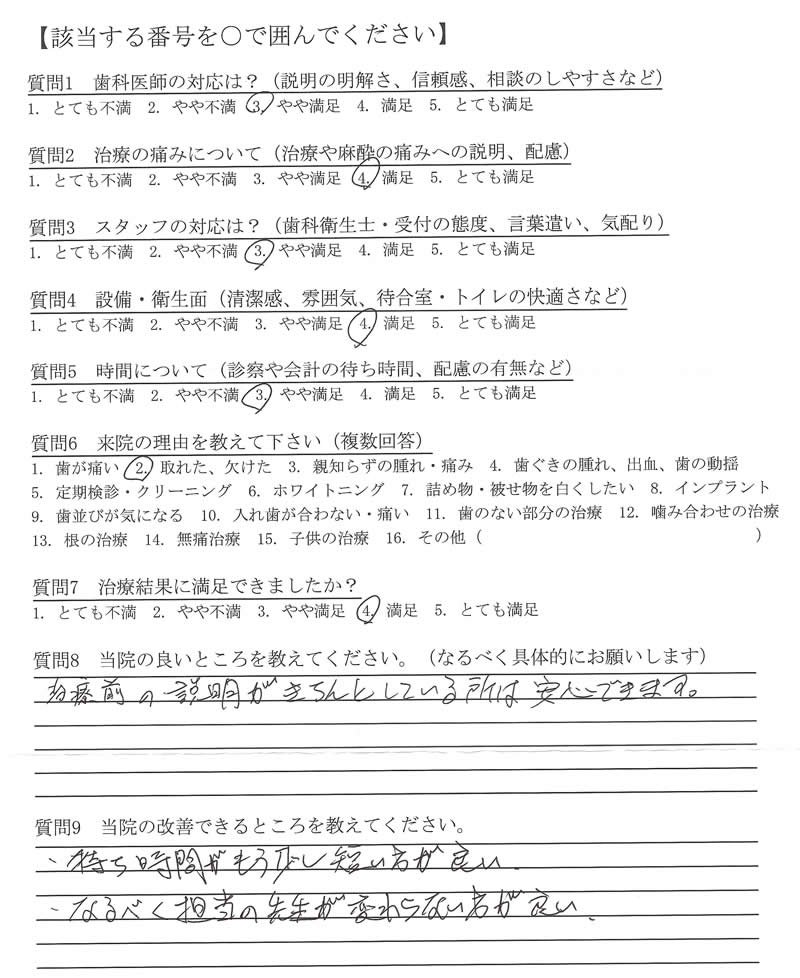 【該当する番号を〇で囲んでください】
質問1　歯科医師の対応は？（説明の明解さ、信頼感、相談のしやすさなど）
1. とても不満　2. やや不満　3. やや満足　4. 満足　5. とても満足
質問2　治療の痛みについて（治療や麻酔の痛みへの説明、配慮）
1. とても不満　2. やや不満　3. やや満足　4. 満足　5. とても満足
質問3　スタッフの対応は？（歯科衛生士・受付の態度、言葉遣い、気配り）
1. とても不満　2. やや不満　3. やや満足　4. 満足　5. とても満足
質問4　設備・衛生面（清潔感、雰囲気、待合室・トイレの快適さなど）
1. とても不満　2. やや不満　3. やや満足　4. 満足　5. とても満足
質問5　時間について（診察や会計の待ち時間、配慮の有無など）
1. とても不満　2. やや不満　3. やや満足　4. 満足　5. とても満足
質問6　来院の理由を教えて下さい（複数回答）
1. 歯が痛い　2. 取れた、欠けた　3. 親知らずの腫れ・痛み　4. 歯ぐきの腫れ、出血、歯の動揺
5. 定期検診・クリーニング　6. ホワイトニング　7. 詰め物・被せ物を白くしたい　8. インプラント
9. 歯並びが気になる　10. 入れ歯が合わない・痛い　11. 歯のない部分の治療　12. 噛み合わせの治療
13. 根の治療　14. 無痛治療　15. 子供の治療　16. その他（　　　）
質問7　治療結果に満足できましたか？
1. とても不満　2. やや不満　3. やや満足　4. 満足　5. とても満足
質問8　当院の良いところを教えてください。（なるべく具体的にお願いします）
治療前の説明がきちんとしている所は安心できます。
質問9　当院の改善できるところを教えてください。
・待ち時間がもう少し短い方が良い.
・なるべく担当の先生が変わらない方が良い.